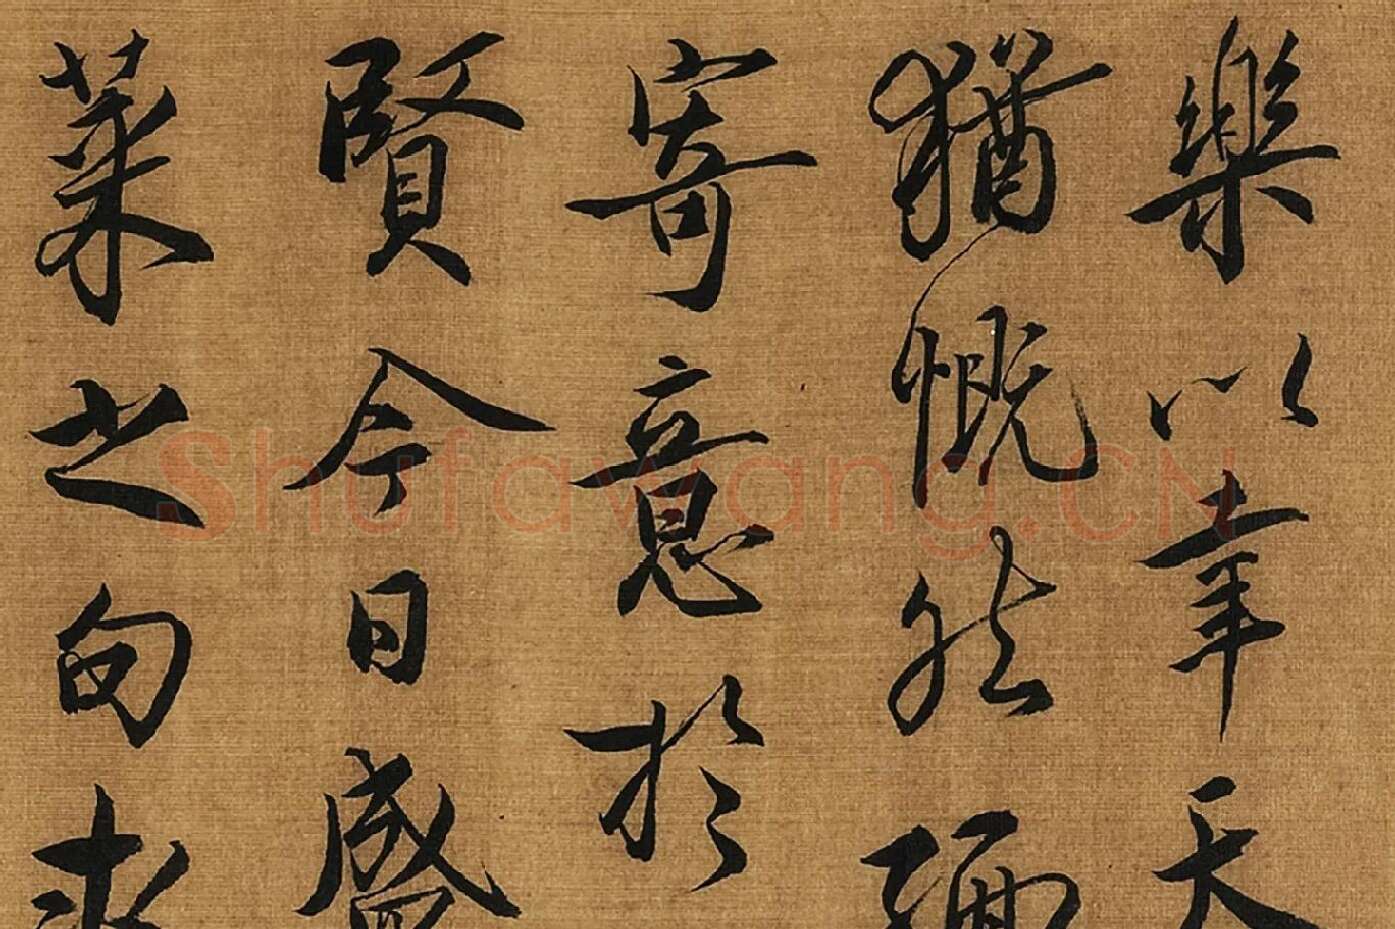 樂以幸天
猶慨然彌
寄意於
賢今日盛
葉之句求
Shufawang.CN